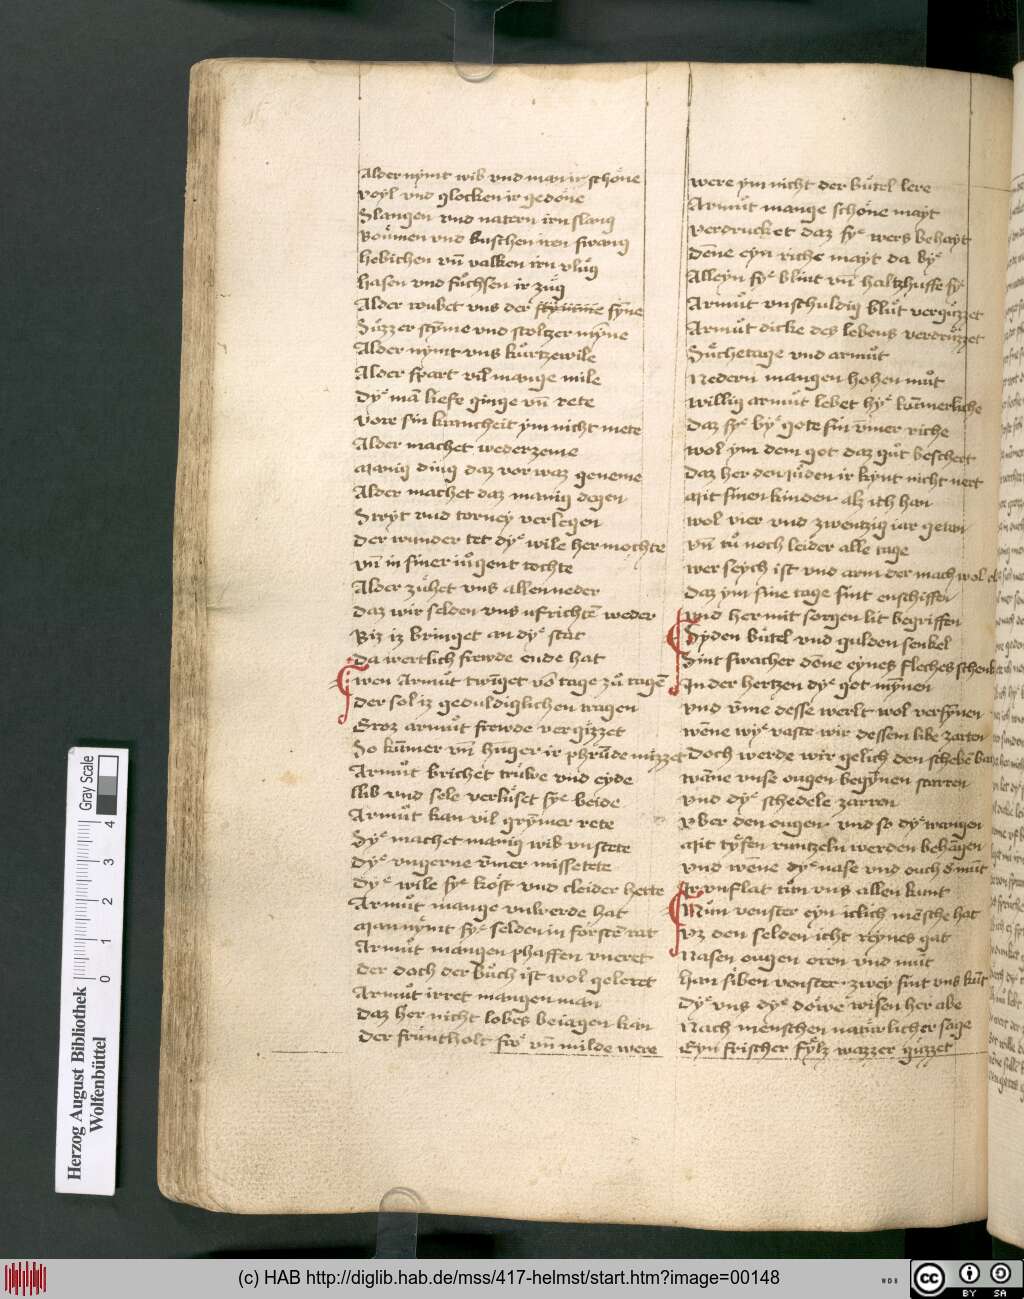 Alder nymt wib vnd man ir schoͤne
voyl vnd glocken ir gedoͤne
Slangen vnd natern irn slang
Boͮmen vnd buschen iren swang
hebichen vn̄ valken irn vluͦg
hasen vnd fuͤchsen ir zuͦg
Alder roubet vns der syne
Suͤzzer stȳme vnd stoltzer mȳne
Alder nymt vns kuͤrtzewile
Alder spart vil mange mile
Dyͤ mā liefe ginge vn̄ rete
vore sin krancheit ym nicht mete
Alder machet wederzeme
Manig ding daz vor waz geneme
Alder machet daz manig degen
Stryt vnd torney verlegen
Der wunder tet dyͤ wile her mochte
vn̄ in siner iuͦgent tochte
Alder zuͤhet vns allen neder
Daz wir selden vns ufrichtē weder
Biz iz bringet an dyͤ stat
Da wertlich frewde ende hat
Wen Armuͦt twīget vō tage zuͦ tagē
Der sol iz geduldiglichen tragen
Groz armuͦt frewde vergizzet
So kūmer vn̄ huger ir phruͤde mizzet
Armuͦt brichet truͤwe vnd eyde
Lib vnd sele verluͤset syͤ beide
Armuͦt kan vil grȳmer rete
Syͤ machet manig wib vnstete
Dyͤ vngerne ūmer missetete
Dyͤ wile syͤ koͤst vnd cleider hette
Armuͦt mange vnwerde hat
Man nymt syͤ selden in forstē rat
Armuͦt mangen phaffen vneret
Der doch der buͦch ist wol geleret
Armuͦt irret mangen man
Daz her nicht lobes beiagen kan
Der fruͤntholt swͤ vn̄ milde were
were ym nicht der buͤtel lere
Armuͦt mange schoͤne mayt
verdrucket daz syͤ wers behayt
Dēne eyn riche mayt da byͤ
Alleyn syͤ blint vn̄ haltzhuffe syͤ
Armuͦt vnschuldig bluͦt verguͤzzet
Armuͦt dicke des lebens verdruͤzzet
Suͤchetage vnd armuͦt
Nedern mangen hohen muͦt
willig armuͦt lebet hyͤ kūmerliche
Daz syͤ byͤ gote sin ūmer riche
wol ym dem got daz guͦt beschert
Daz her den iuͤden ir kynt nicht nert
Mit sinen kinden alz ich han
wol vier vnd zwentzig iar getan
vn̄ tuͦ noch leider alle tage
wer seych ist vnd arm der mach wol
Daz ym sine tage sint enschiffen
vnd her mit sorgen lit begriffen
Syden buͤtel vnd gulden senkel
Sint swacher dēne eynes fleches schenkel
In der hertzen dyͤ got mȳnen
vnd ūme desse werlt wol versȳnen
wēne wyͤ vaste wir dessem libe zarten
Doch werde wir gelich den schebē
wāne vnse ougen begȳnen starren
vnd dyͤ schedele zarren
vber den ougen vnd so dyͤ wangen
Mit tyͤfen runtzeln werden behāgen
vnd wēne dyͤ nase vnd ouch d' mūt
Ir vnflat tūn vns allen kunt
Nuͤn venster eyn iclich mēsche hat
vz den selden icht reynes gat
Nasen ougen oren vnd muͦt
han siben venster zwey sint vns kūt
Dyͤ vns dyͤ doͤwe wisen her abe
Nach menschen natuͤrlicher sage
Eyn frischer fylz wazzer guͤzzet
Herzog August Bibliothek
Wolfenbüttel
Gray Scale
0 1 2 3 4
(c) HAB http://diglib.hab.de/mss/417-helmst/start.htm?image=00148
WDB
cc BY SA